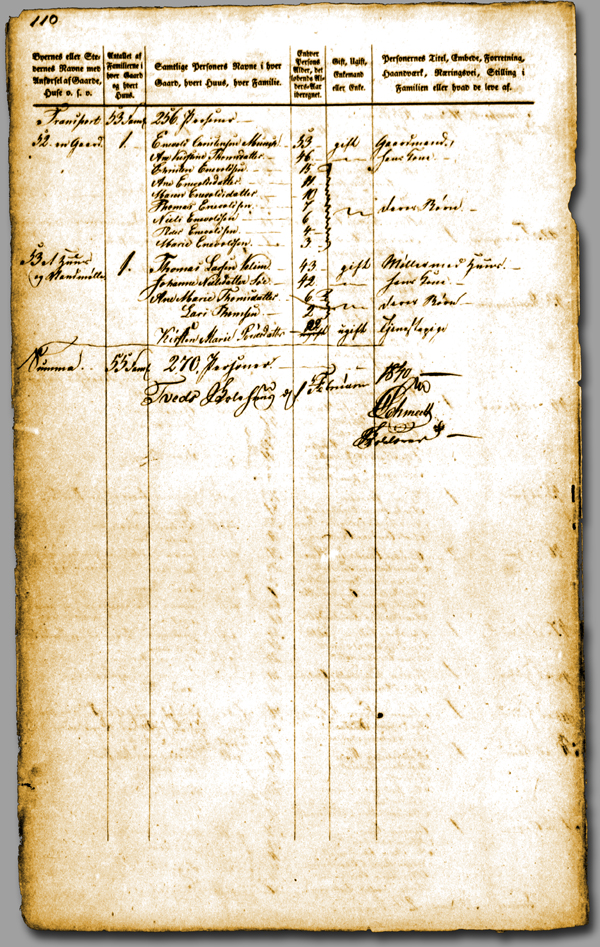 110
Byernes eller Ste-
dernes Navne med
Anførsel af Gaarde,
Huse o. s. v.
Antallet af
Familierne i
hver Gaard
og hvert
Huus.
Samtlige Personers Navne i hver
Gaard, hvert Huus, hver Familie.
Enhver
Persons
Alder, det
løbende Al-
ders-Aar
iberegnet.
Gift, Ugift,
Enkemand
eller Enke.
Personernes Titel, Embede, Forretning,
Haandværk, Næringsvei, Stilling i
Familien eller hvad de leve af.
Transport 53 Fam. 256 Personer
52 en Gaard. 1. 53 gift Gaardmand,
Ane Thomsdatter 46 hans Kone
15
Ane Enevoldsdatter 11
Maren Enevoldsdatter 10
Thomas Enevoldsen 7 deres Børn
Niels Enevoldsen 6
Enevoldsen 4
Marie Enevoldsen 3
53 et Huus 1. Thomas 43 gift Møller med Huus.
og Vandmølle Johanne Nielsdatter 42 hans Kone
Ane Marie Thomsdatter 6 deres Børn
Lars Thomsen 2
Kirsten Marie ugift Tjenestepige
Summa. 55 Fam. 270. Personer
Tveds Skolehuus d Februar 1840